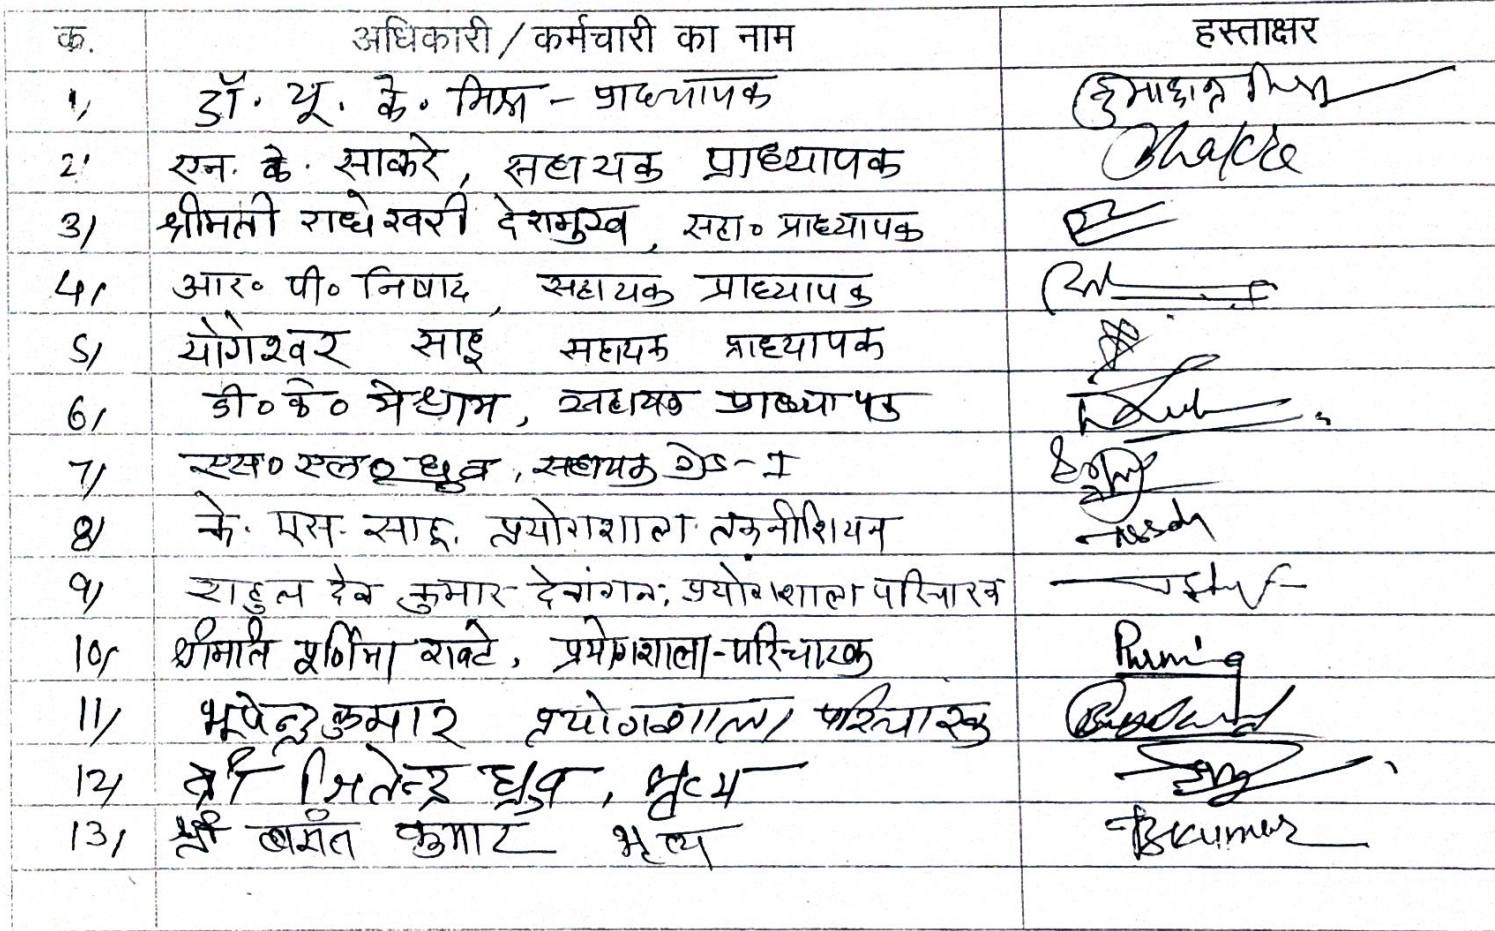 क. अधिकारी/कर्मचारी का नाम हस्ताक्षर
1/ डॉ. यू. के. मिश्र - प्राध्यापक
2/ एन. के. साकरे, सहायक प्राध्यापक
3/ श्रीमती राधेश्वरी देशमुख, सहा० प्राध्यापक
4/ आर० पी० निषाद, सहायक प्राध्यापक
5/ योगेश्वर साहू सहायक प्राध्यापक
6/ डी० के० मेश्राम, सहायक प्राध्यापक
7/ एस० एल० ध्रुव, सहायक ग्रेड-I
8/ के. एस. साहू. प्रयोगशाला तकनीशियन
9/ राहुल देव कुमार देवांगन, प्रयोगशाला परिचारक
10/ श्रीमति पूर्णिमा रावटे, प्रयोगशाला-परिचारक Purnima
11/ भूपेन्द्र कुमार प्रयोगशाला परिचारक
12/ श्री जितेन्द्र ध्रुव, भृत्य
13/ श्री बसंत कुमार भृत्य Bkumar